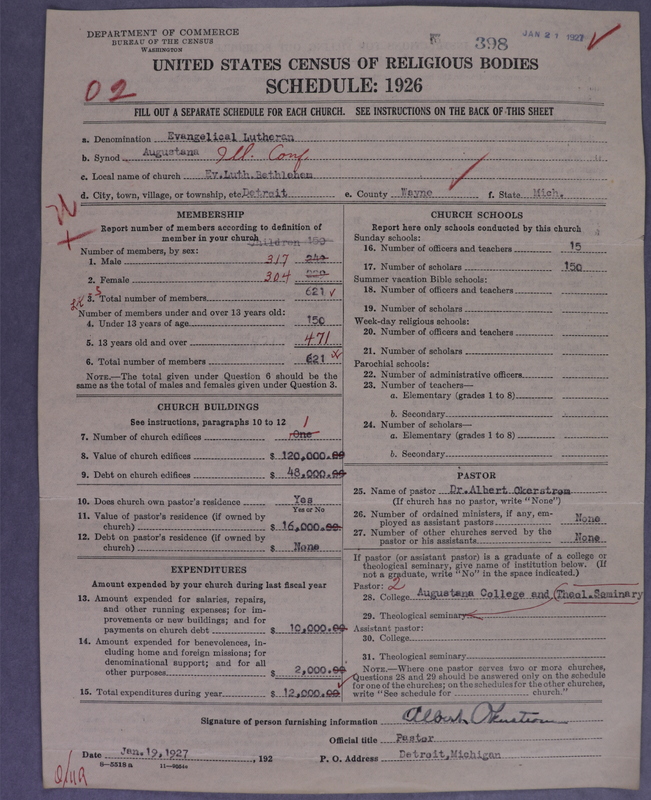 DEPARTMENT OF COMMERCE
BUREAU OF THE CENSUS
WASHINGTON
398
JAN 21 1927
UNITED STATES CENSUS OF RELIGIOUS BODIES
SCHEDULE: 1926
02
FILL OUT A SEPARATE SCHEDULE FOR EACH CHURCH. SEE INSTRUCTIONS ON THE BACK OF THIS SHEET
a. Denomination Evangelical Lutheran
b. Synod Augustana Ill. Conf.
c. Local name of church Ev.Luth.Bethlehem
d. City, town, village, or township, etc. Detroit e. County Wayne f. State Mich.
MEMBERSHIP
Report number of members according to definition of
member in your church Children 150
Number of members, by sex:
1. Male 317
2. Female 304
3. Total number of members 621
Number of members under and over 13 years old:
4. Under 13 years of age 150
5. 13 years old and over 471
6. Total number of members 621
NOTE.—The total given under Question 6 should be the
same as the total of males and females given under Question 3.
CHURCH BUILDINGS
See instructions, paragraphs 10 to 12
7. Number of church edifices One 1
8. Value of church edifices $ 120,000.00
9. Debt on church edifices $ 48,000.00
10. Does church own pastor's residence Yes
Yes or No
11. Value of pastor's residence (if owned by
church) $ 16,000.00
12. Debt on pastor's residence (if owned by
church) $ None
EXPENDITURES
Amount expended by your church during last fiscal year
13. Amount expended for salaries, repairs,
and other running expenses; for im-
provements or new buildings; and for
payments on church debt $ 10,000.00
14. Amount expended for benevolences, in-
cluding home and foreign missions; for
denominational support; and for all
other purposes $ 2,000.00
15. Total expenditures during year $ 12,000.00
CHURCH SCHOOLS
Report here only schools conducted by this church
Sunday schools:
16. Number of officers and teachers 15
17. Number of scholars 150
Summer vacation Bible schools:
18. Number of officers and teachers
19. Number of scholars
Week-day religious schools:
20. Number of officers and teachers
21. Number of scholars
Parochial schools:
22. Number of administrative officers
23. Number of teachers—
a. Elementary (grades 1 to 8)
b. Secondary
24. Number of scholars—
a. Elementary (grades 1 to 8)
b. Secondary
PASTOR
25. Name of pastor Dr.Albert Okerstrom
(If church has no pastor, write "None")
26. Number of ordained ministers, if any, em-
ployed as assistant pastors None
27. Number of other churches served by the
pastor or his assistants None
If pastor (or assistant pastor) is a graduate of a college or
theological seminary, give name of institution below. (If
not a graduate, write "No" in the space indicated.)
Pastor: 2
28. College Augustana College and Theol.Seminary
29. Theological seminary
Assistant pastor:
30. College
31. Theological seminary
NOTE.—Where one pastor serves two or more churches,
Questions 28 and 29 should be answered only on the schedule
for one of the churches; on the schedules for the other churches,
write "See schedule for church."
Signature of person furnishing information Albert Okerstrom
Official title Pastor
Date Jan.19,1927, 192 P. O. Address Detroit,Michigan
8—5518 a